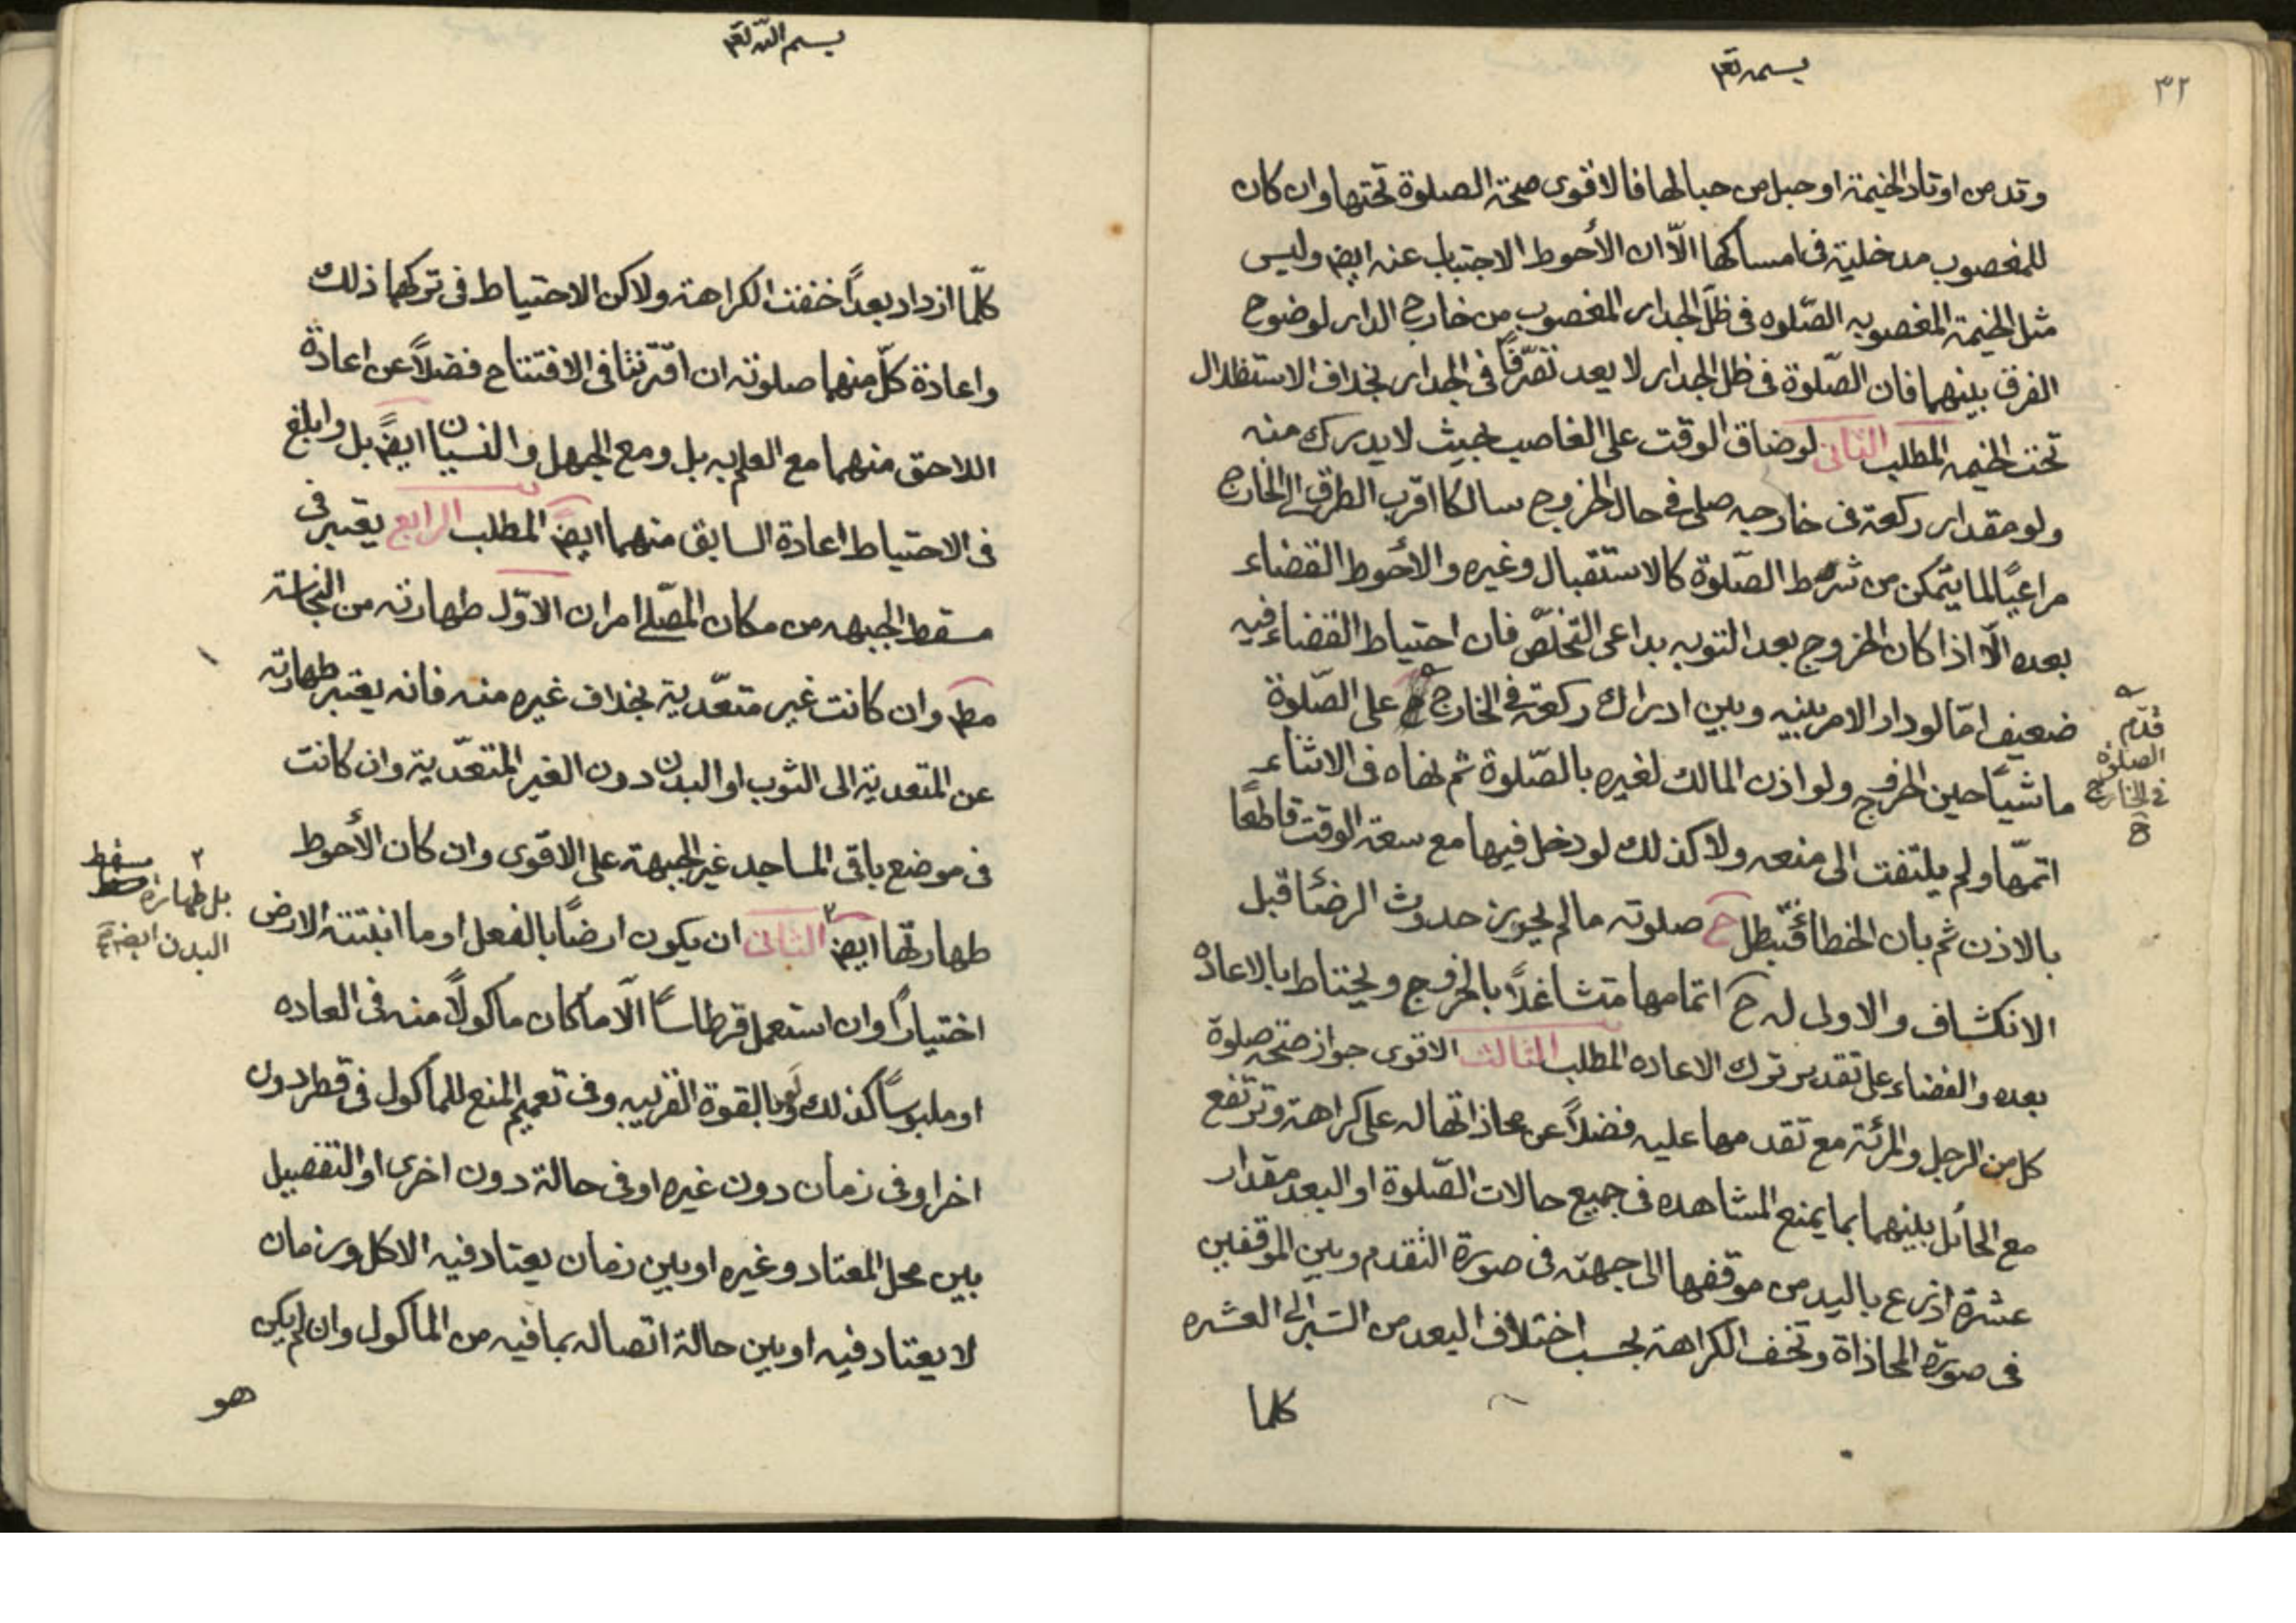 ٣٢
بسمه تعم
وتد من اوتاد الخيمة او حبل من حبالها فالاقوى صحة الصلوة تحتها وان كان
للمغصوب مدخلية فى امساكها الّا ان الأحوط الاجتباب عنه ايضم وليس
مثل الخيمة المغصوبه الصّلوه فى ظلّ الجدار المغصوب من خارج الدار لوضوح
الفرق بينهما فان الصّلوة فى ظل الجدار لا يعد تصرّفاً فى الجدار بخلاف الاستظلال
تحت الخيمه المطلب الثانى لو ضاق الوقت على الغاصب بحيث لا يدرك منه
ولو مقدار ركعة فى خارجه صلى فى حال الخروج سالكا اقرب الطرق الى الخارج
مراعيًا لما يتمكن من شرط الصّلوة كالاستقبال وغيره والأحوط القضاء
بعده الّا اذا كان الخروج بعد التوبه بداعى التخلّص فان احتياط القضاء فيه
ضعيف امّا لو دار الامر بينه وبين ادراك ركعة فى الخارج على الصّلوة
قدّم
الصلوة
فى الخارج
ماشيًا حين الخروج ولو اذن المالك لغيره بالصّلوة ثم نهاه فى الاثناء
اتمّها ولم يلتفت الى منعه ولا كذلك لو دخل فيها مع سعة الوقت قاطعًا
بالاذن ثم بان الخطأ فتبطل ح صلوته ما لم يجوز حدوث الرضا قبل
الانكشاف والاولى له ح اتمامها متشاغلاً بالخروج ويحتاط بالاعاده
بعده والقضاء على تقدير ترك الاعاده المطلب الثالث الاقوى جواز صحة صلوة
كل من الرجل والمرئة مع تقدمها عليه فضلاً عن محاذاتها له على كراهة وترتفع
مع الحائل بينهما بما يمنع المشاهده فى جميع حالات الصّلوة او البعد مقدار
عشرة اذرع باليد من موقفها الى جهته فى صورة التقدم وبين الموقفين
فى صورة المحاذاة وتخف الكراهة بحسب اختلاف البعد من الشبر الى العشره
كلما
بسم اللّه تعم
كلّما ازداد بعداً خففت الكراهة ولاكن الاحتياط فى تركها ذلك
واعادة كلّ منهما صلوته ان اقترنتا فى الافتتاح فضلاً عن اعادة
اللاحق منهما مع العلم به بل ومع الجهل والنسيان ايضمً بل وابلغ
فى الاحتياط اعادة السابق منهما ايضمً المطلب الرابع يعتبر فى
مسقط الجبهه من مكان المصّلى امران الاوّل طهارته من النجاسة
مطم وان كانت غير متعّدية بخلاف غيره منه فانه يعتبر طهارته
عن المتعدية الى الثوب او البدن دون الغير المتعّدية وان كانت
فى موضع باقى المساجد غير الجبهة على الاقوى وان كان الأحوط
طهارتها ايضم ٢ الثانى ان يكون ارضًا بالفعل او ما انبتته الارض
٢ بل طهارة مسقط
البدن ايضم
اختياراً وان استعمل قرطاساً الّا ما كان مأكولاً منه فى العاده
او ملبوساً كذلك ولو بالقوة القريبه وفى تعميم المنع للمأكول فى قطر دون
اخر او فى زمان دون غيره او فى حالة دون اخرى او التفصيل
بين محل المعتاد وغيره او بين زمان يعتاد فيه الاكل وزمان
لا يعتاد فيه او بين حالة اتصاله بما فيه من المأكول وان لم يكن
هو